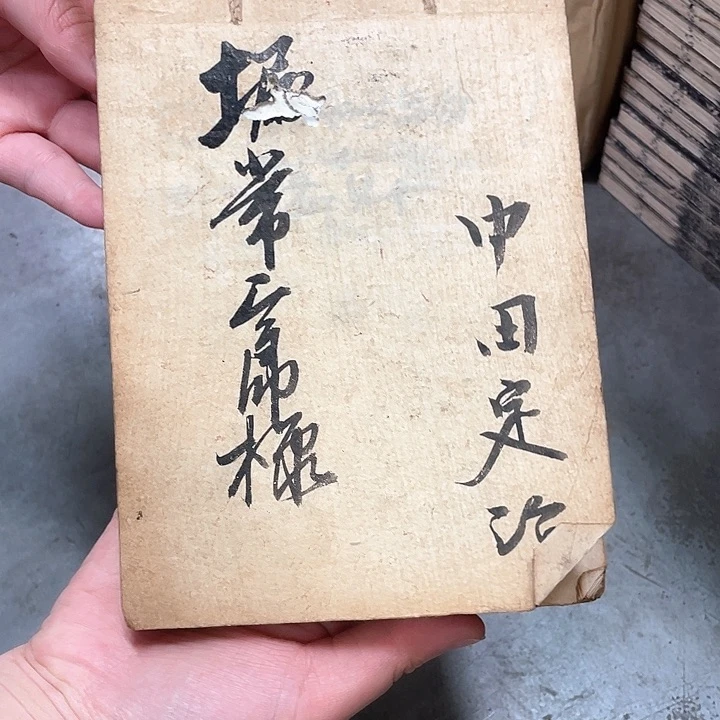 中田定治
堀常三郎様